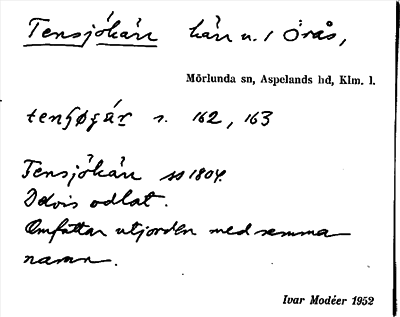 Tensjökärr kärr n. 1 Örås,
Mörlunda sn, Aspelands hd, Klm. l.
s. 162, 163
Tensjökärr ss 1804.
Delvis odlat.
Omfattar utjorden med samma
namn.
Ivar Modéer 1952